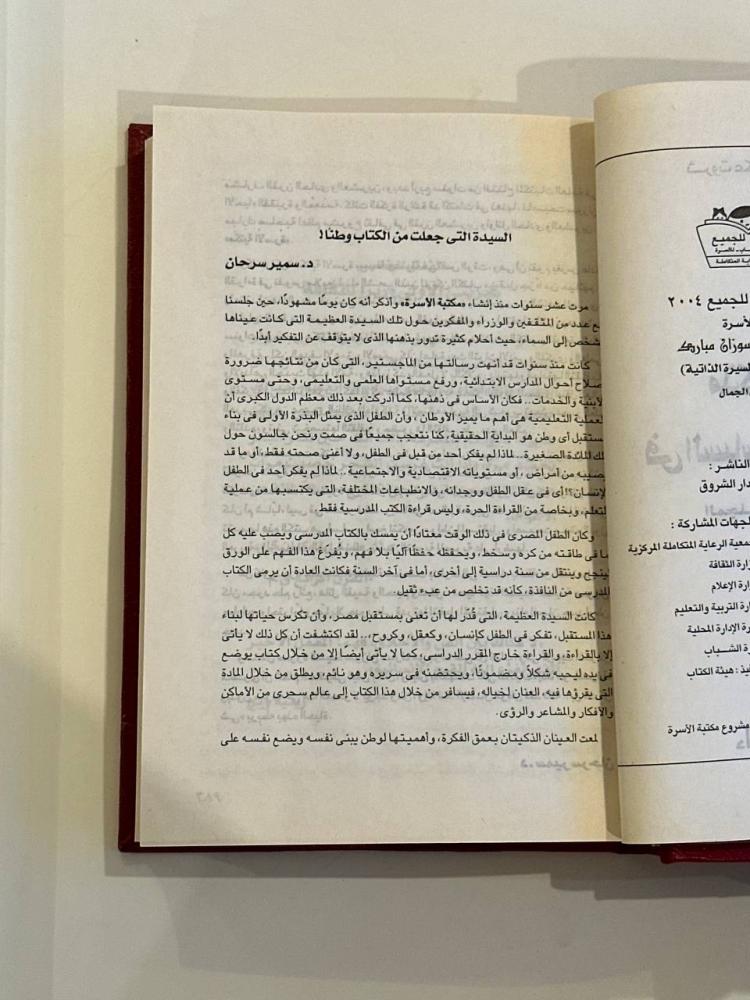 السيدة التى جعلت من الكتاب وطنا!
د. سمير سرحان
مرت عشر سنوات منذ إنشاء «مكتبة الأسرة» وأذكر أنه كان يومًا مشهودًا، حين جلسنا
عدد من المثقفين والوزراء والمفكرين حول تلك السيدة العظيمة التى كانت عيناها
إلى السماء، حيث أحلام كثيرة تدور بذهنها الذى لا يتوقف عن التفكير أبدًا.
كانت منذ سنوات قد أنهت رسالتها من الماجستير، التى كان من نتائجها ضرورة
أحوال المدارس الابتدائية، ورفع مستواها العلمى والتعليمى، وحتى مستوى
والخدمات.. فكان الأساس فى ذهنها، كما أدركت بعد ذلك معظم الدول الكبرى أن
التعليمية هى أهم ما يميز الأوطان، وأن الطفل الذى يمثل البذرة الأولى فى بناء
أى وطن هو البداية الحقيقية، كنا نتعجب جميعًا فى صمت ونحن جالسون حول
المائدة الصغيرة... لماذا لم يفكر أحد من قبل فى الطفل، ولا أعنى صحته فقط، أو ما قد
من أمراض، أو مستوياته الاقتصادية والاجتماعية.. لماذا لم يفكر أحد فى الطفل
أى فى عقل الطفل ووجدانه، والانطباعات المختلفة، التى يكتسبها من عملية
وبخاصة من القراءة الحرة، وليس قراءة الكتب المدرسية فقط.
وكان الطفل المصرى فى ذلك الوقت معتادًا أن يمسك بالكتاب المدرسى ويصب عليه كل
ما فى طاقته من كره وسخط، ويحفظه حفظًا آليًا بلا فهم، ويُفرغ هذا الفهم على الورق
لينجح وينتقل من سنة دراسية إلى أخرى، أما فى آخر السنة فكانت العادة أن يرمى الكتاب
المدرسى من النافذة، كأنه قد تخلص من عبء ثقيل.
كانت السيدة العظيمة، التى قُدِّر لها أن تعنى بمستقبل مصر، وأن تكرس حياتها لبناء
هذا المستقبل، تفكر فى الطفل كإنسان، وكعقل، وكروح،.. لقد اكتشفت أن كل ذلك لا يأتى
إلا بالقراءة، والقراءة خارج المقرر الدراسى، كما لا يأتى أيضًا إلا من خلال كتاب يوضع
فى يده ليحبه شكلاً ومضمونًا، ويحتضنه فى سريره وهو نائم، ويطلق من خلال المادة
التى يقرؤها فيه، العنان لخياله، فيسافر من خلال هذا الكتاب إلى عالم سحرى من الأماكن
والأفكار والمشاعر والرؤى.
لمعت العينان الذكيتان بعمق الفكرة، وأهميتها لوطن يبنى نفسه ويضع نفسه على
للجميع
المتكاملة
للجميع ٢٠٠٤
سوزان مبارك
(السيرة الذاتية)
الجمال
الناشر :
دار الشروق
الجهات المشاركة :
جمعية الرعاية المتكاملة المركزية
وزارة الثقافة
وزارة الإعلام
وزارة التربية والتعليم
وزارة الإدارة المحلية
وزارة الشباب
هيئة الكتاب
مشروع مكتبة الأسرة